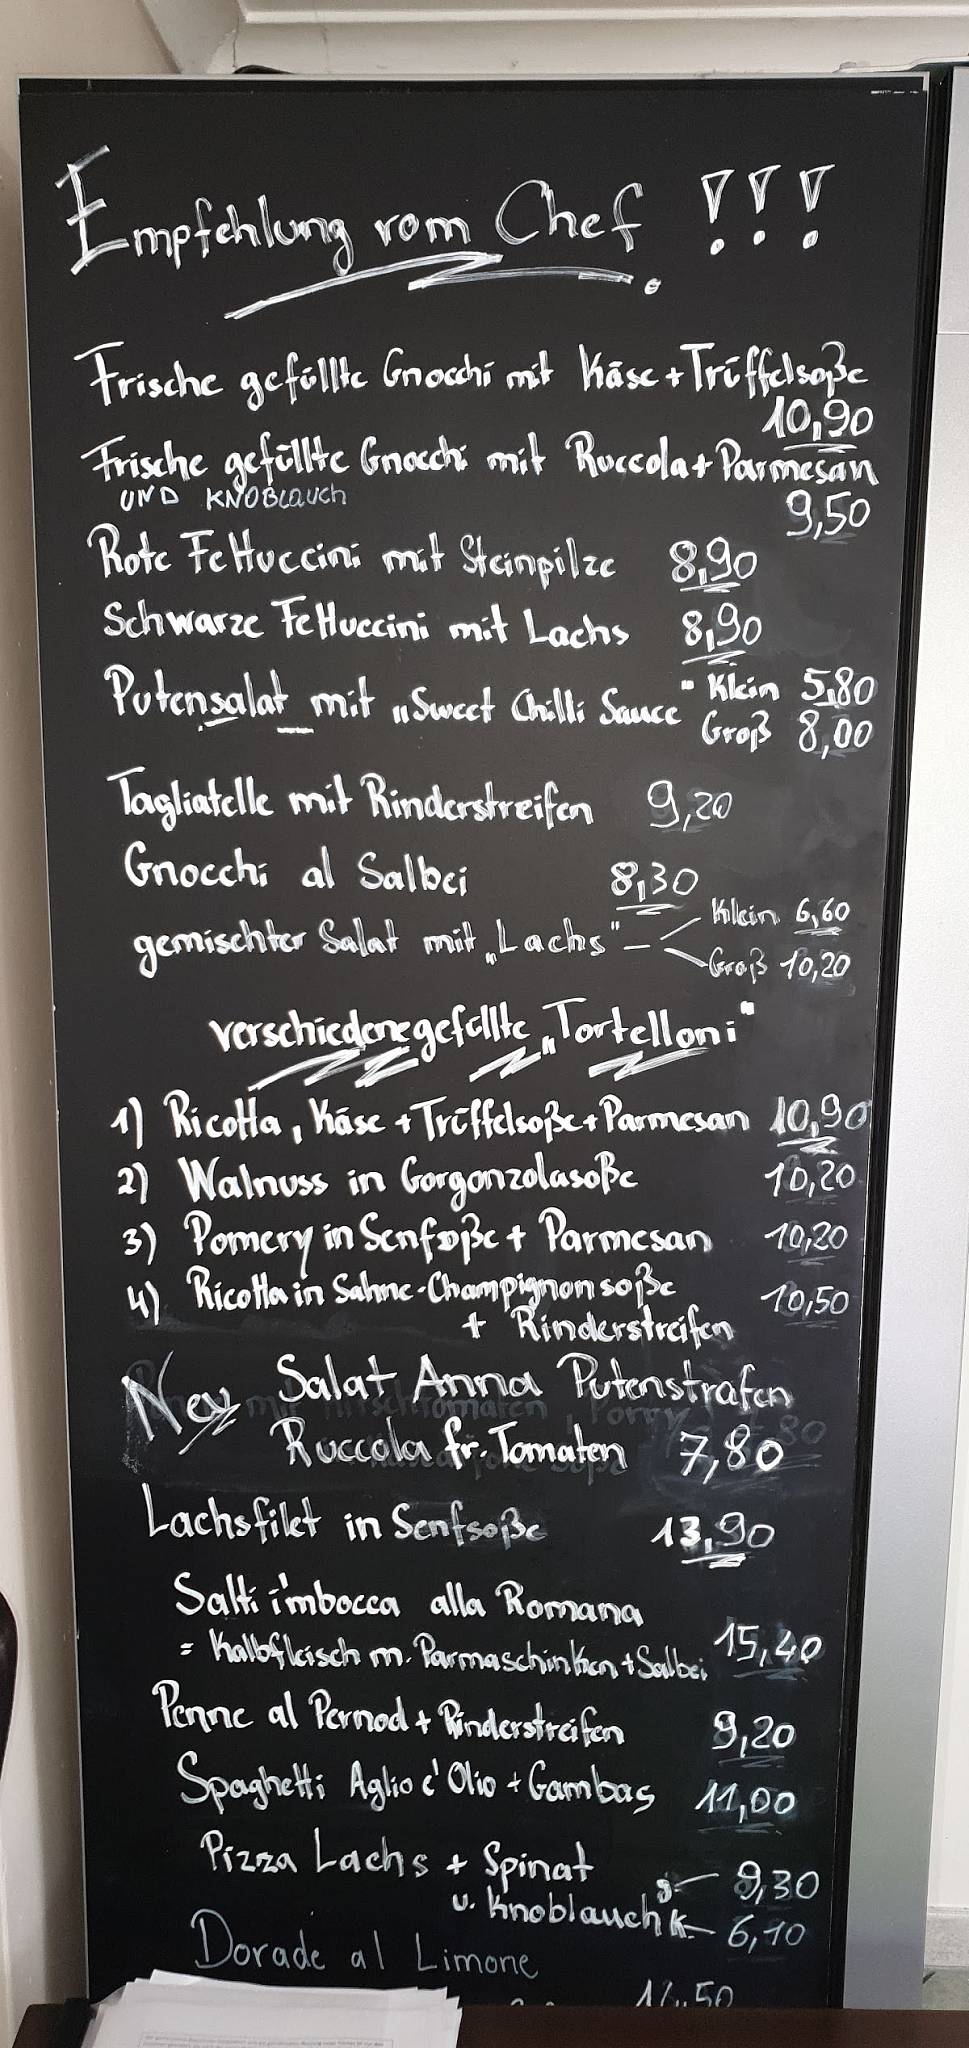 Empfehlung vom Chef !!!
Frische gefüllte Gnocchi mit Käse + Trüffelsoße
10,90
Frische gefüllte Gnocchi mit Ruccola + Parmesan
UND KNOBLAUCH
9,50
Rote Fettuccini mit Steinpilze 8,90
Schwarze Fettuccini mit Lachs 8,90
Putensalat mit „Sweet Chilli Sauce" Klein 5,80
Groß 8,00
Tagliatelle mit Rinderstreifen 9,20
Gnocchi al Salbei 8,30
gemischter Salat mit „Lachs" - Klein 6,60
Groß 10,20
verschiedene gefüllte „Tortelloni"
1) Ricotta, Käse + Trüffelsoße + Parmesan 10,90
2) Walnuss in Gorgonzolasoße 10,20
3) Pomery in Senfsoße + Parmesan 10,20
4) Ricotta in Sahne-Champignonsoße 10,50
+ Rinderstreifen
Neu Salat Anna Putenstrafen
Ruccola fr. Tomaten 7,80
Lachsfilet in Senfsoße 13,90
Salti i'mbocca alla Romana
= Kalbfleisch m. Parmaschinken + Salbei 15,40
Penne al Pernod + Rinderstreifen 9,20
Spaghetti Aglio e' Olio + Gambas 11,00
Pizza Lachs + Spinat g. - 9,30
u. Knoblauch k. - 6,10
Dorade al Limone